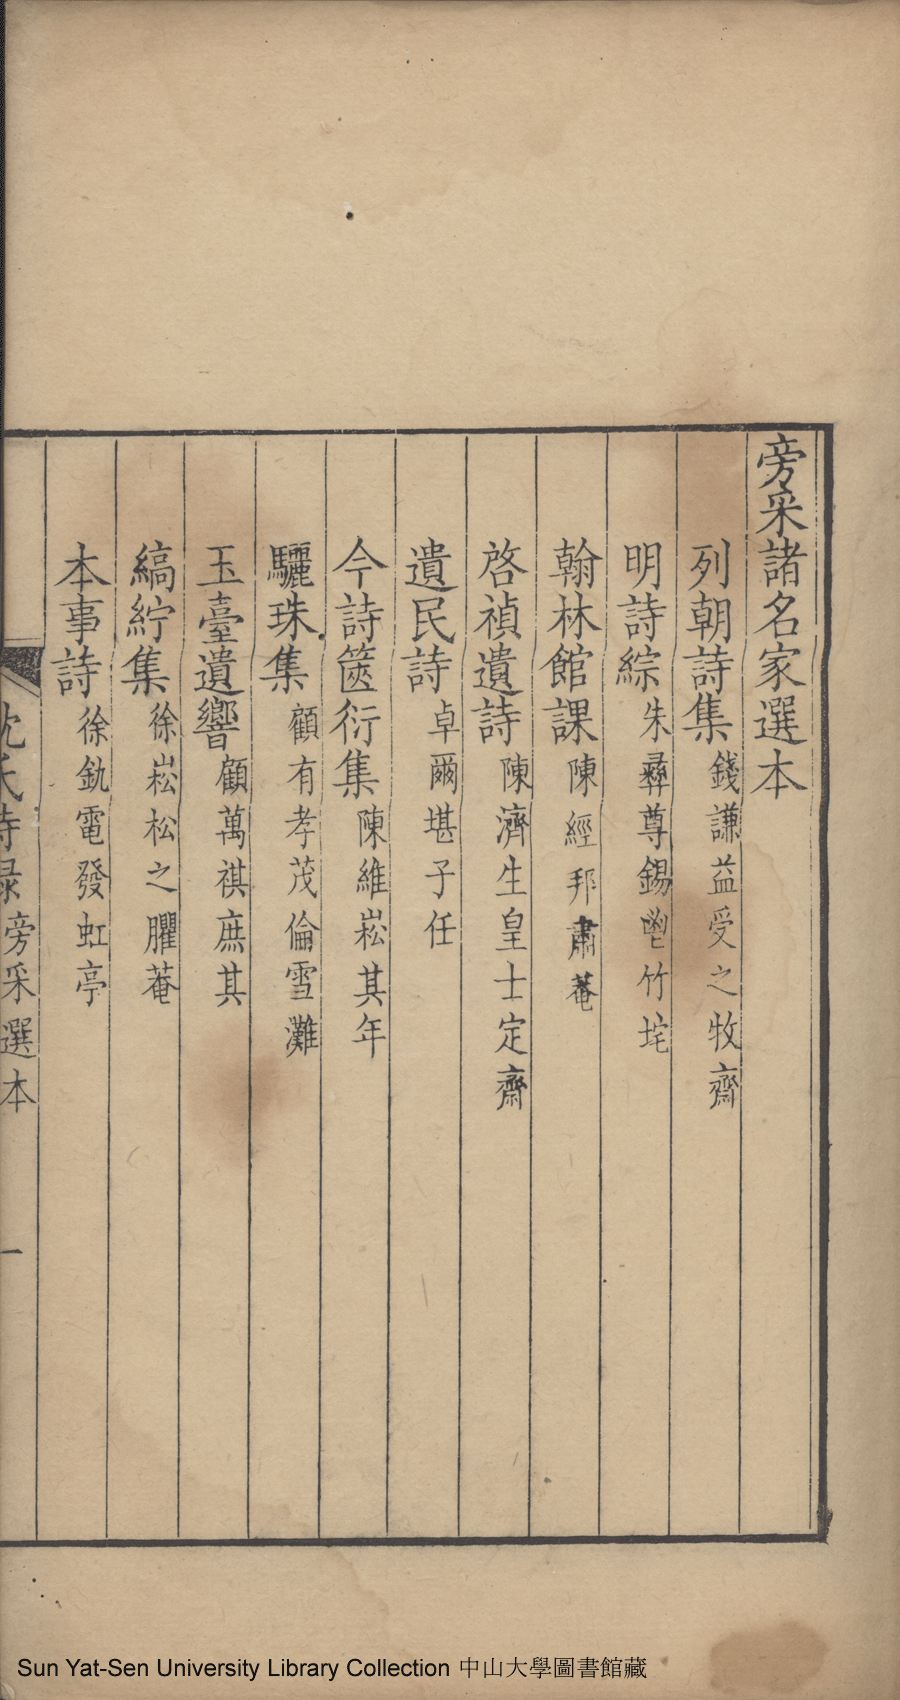 旁采諸名家選本
列朝詩集 錢謙益受之牧齋
明詩綜 朱彝尊錫鬯竹垞
翰林館課 陳經邦肅菴
啓禎遺詩 陳濟生皇士定齋
遺民詩 卓爾堪子任
今詩篋衍集 陳維崧其年
驪珠集 顧有孝茂倫雪灘
玉臺遺響 顧萬祺庶其
縞紵集 徐崧松之臞菴
本事詩 徐釚電發虹亭
沈氏詩録 旁采選本 一
Sun Yat-Sen University Library Collection 中山大學圖書館藏